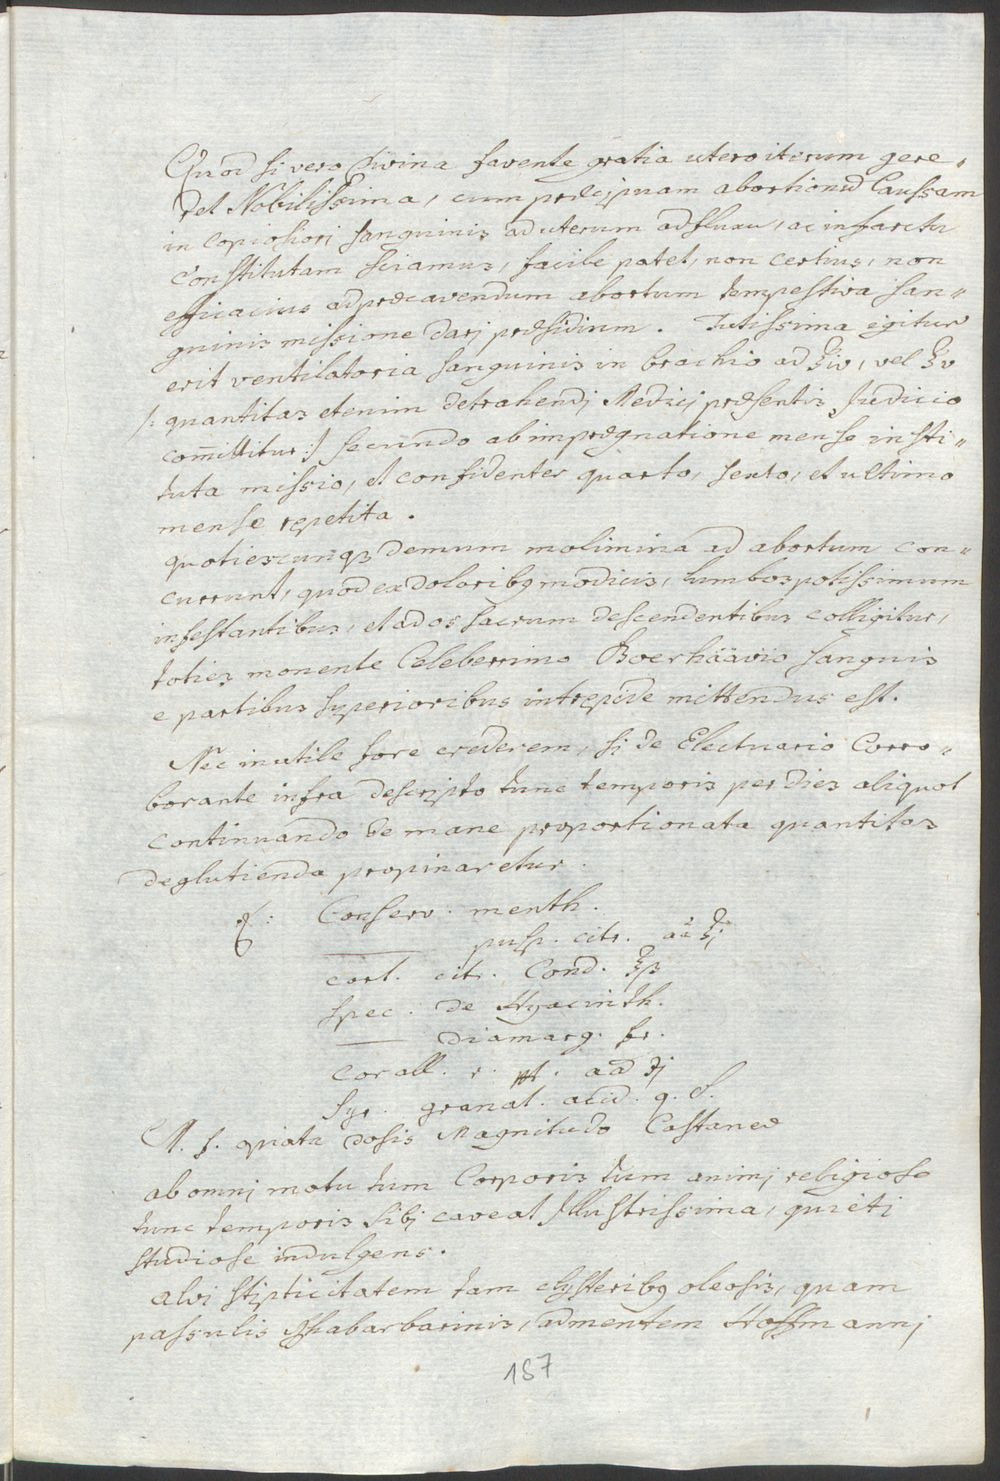 Quod si vero Divina favente gratia utero iterum gere„
ret Nobilissima, cum præcipuam abortionis Caussam
in copiosiori sanguinis ad uterum adfluxu, ac infarctu
Constitutam sciamus, facile patet, non certius, non
efficacius ad præcavendum abortum tempestiva san„
guinis missione dari præsidium. Tutissima igitur
erit ventilatoria sanguinis in brachio ad ℥iv, vel ℥v
/: quantitas etenim detrahendi Medici præsentis Judicio
com̅ittitur :/ secundo ab imprægnatione mense insti„
tuta missio, et confidenter quarto, sexto, et ultimo
mense repetita.
quotiescunqꝫ demum molimina ad abortum con„
currunt, quod ex doloribꝰ modicis, lumbos potissimum
infestantibus, et ad os sacrum descendentibus colligitur,
toties monente Celeberrimo Boerhääviö sanguis
e partibus superioribus intrepide mittendus est.
Nec inutile fore crederem, si de Electuario Corro„
borante infra descripto tunc temporis per dies aliquot
continuando de mane proportionata quantitas
deglutienda propinaretur.
℞: Conserv. menth.
—— pulp. citr. aa ℥j
cort. citr. Cond. ℥ß
Spec. de Hyacinth.
—— diamarg. fr.
corall. r. ppt. aa ʒj
Syr. granat. acid. q. S.
M. f. opiata dosis Magnitudo Castaneæ
ab omni motu tum Corporis tum animi religiose
tunc temporis sibi caveat Illustrissima, quieti
studiose indulgens.
alvi stipticitatem tam clysteribꝰ oleosis, quam
passulis Rhabarbarinis, ad mentem Hoffmanni
187